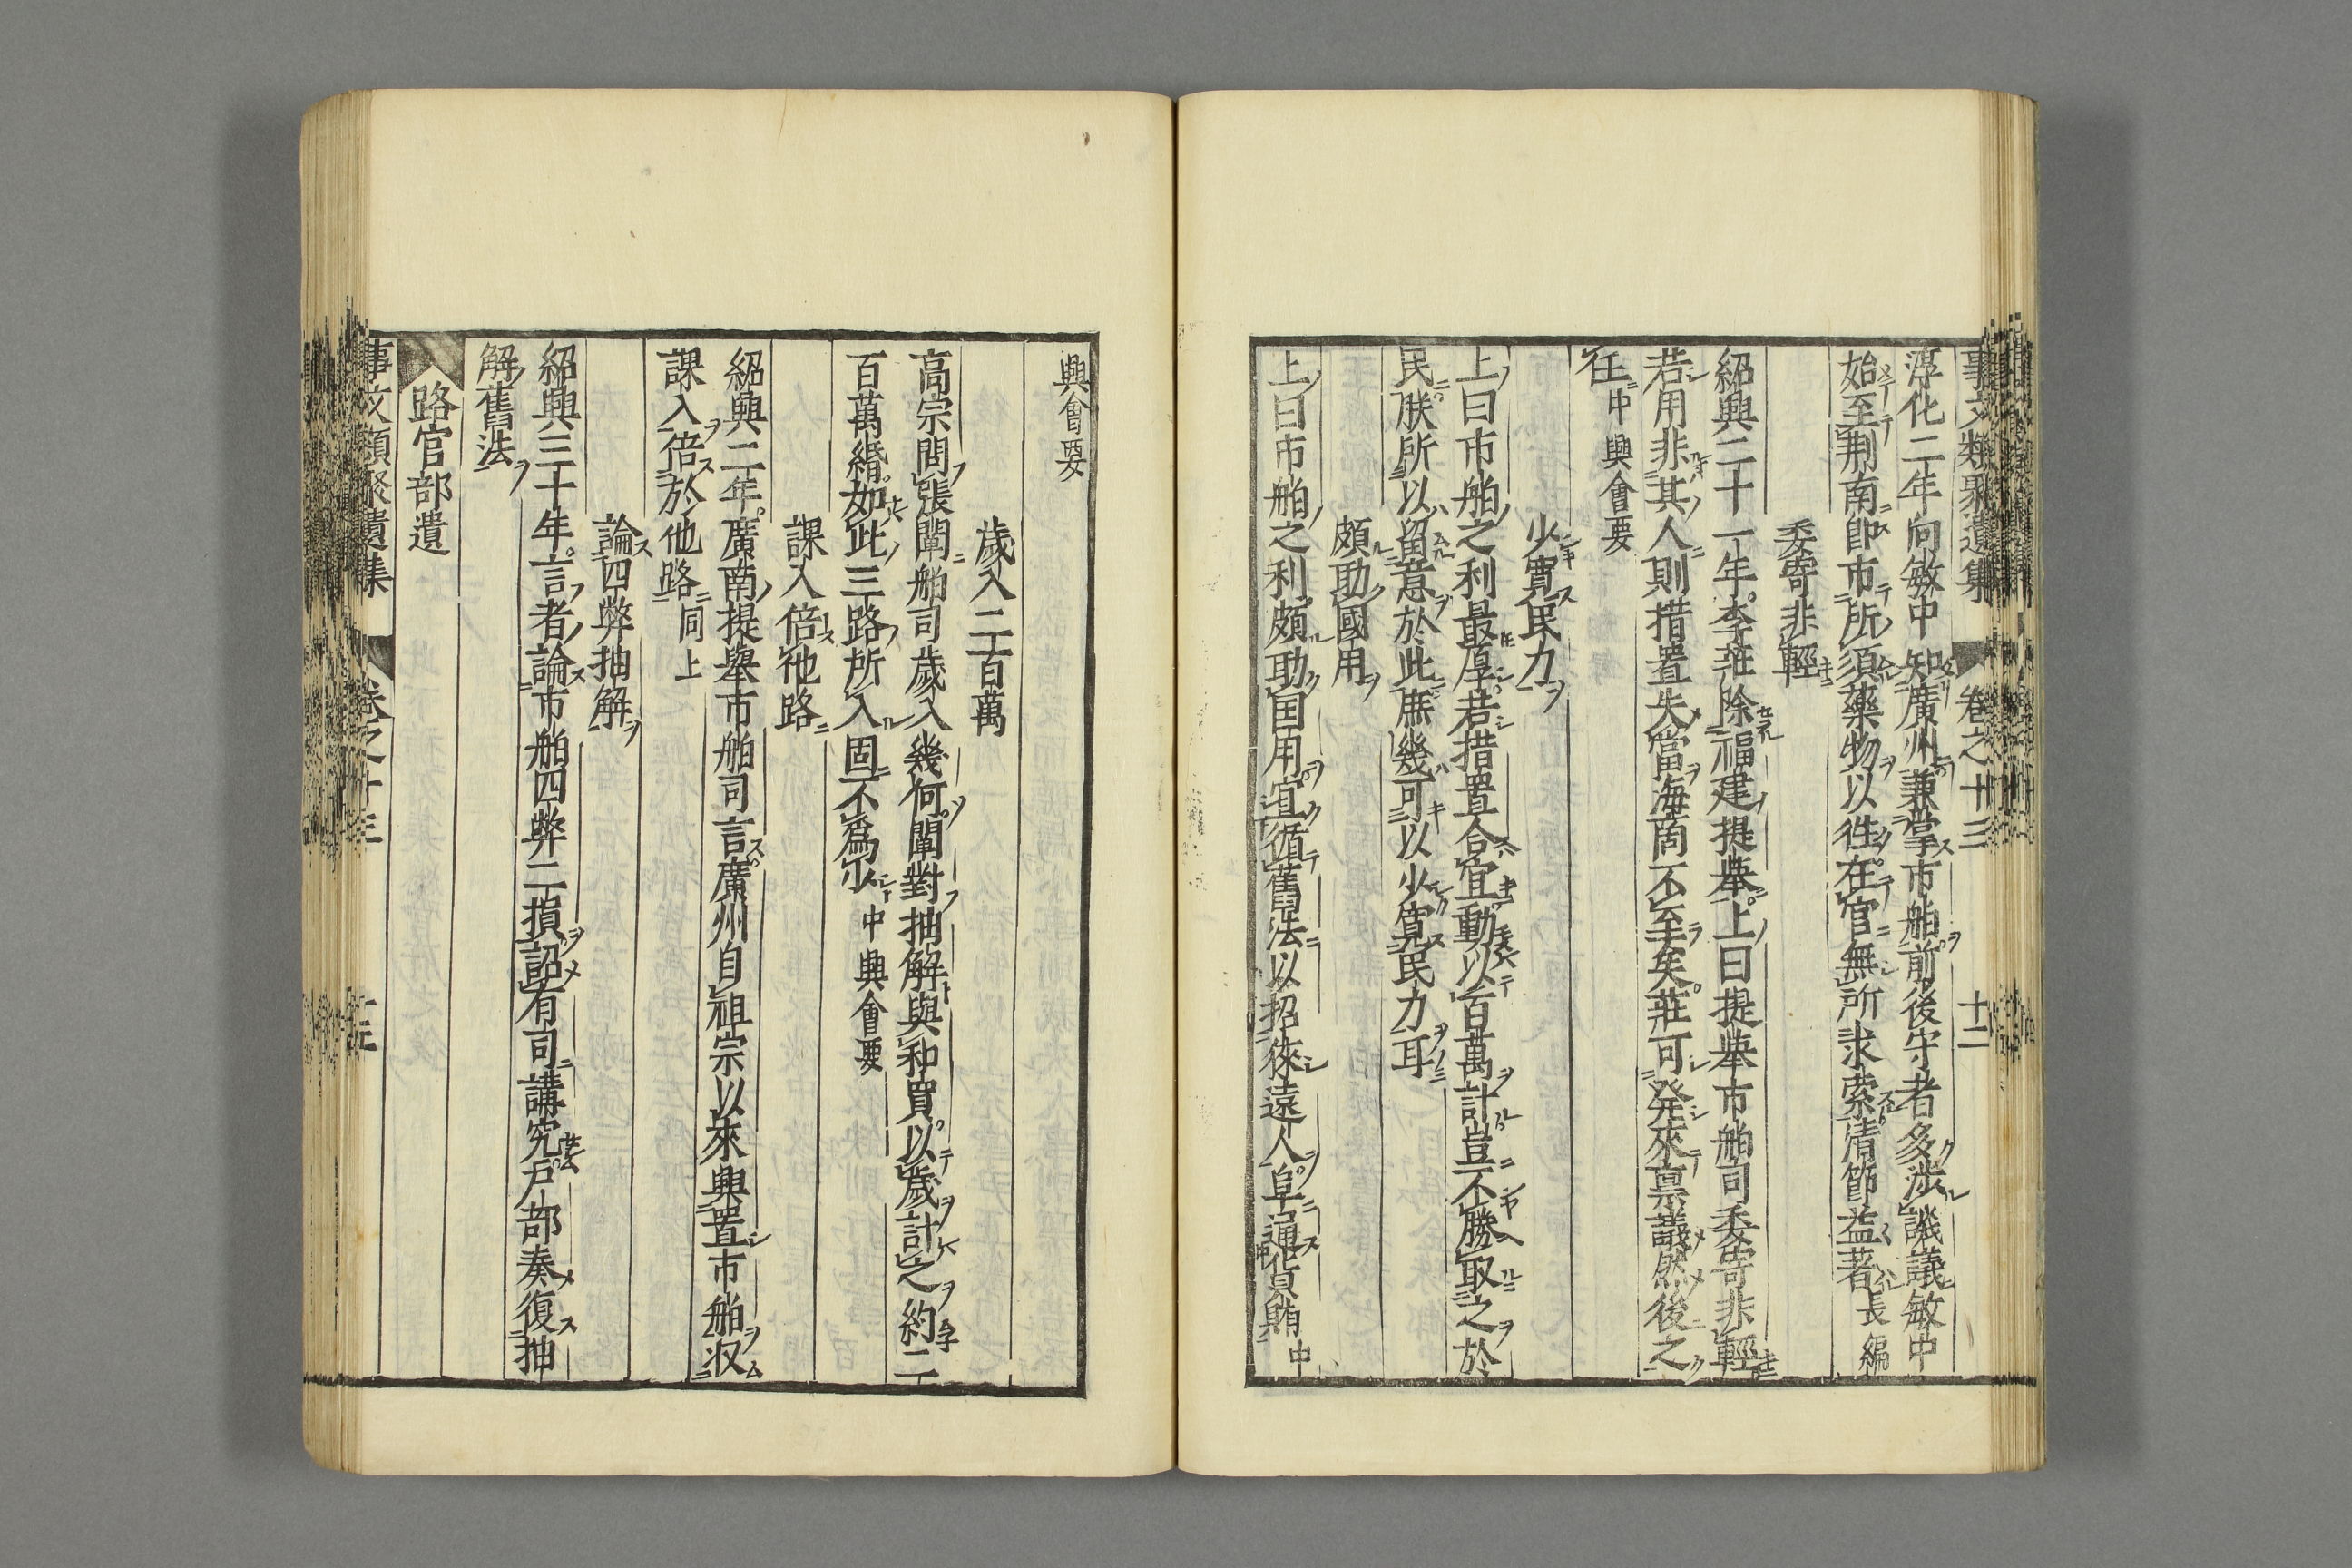 事文類聚遺集 卷之十三 十二
淳化二年向敏中知廣州兼掌市舶前後守者多涉譏議敏中
始至荆南即市所須藥物以徃在官無所求索清節益著長編
委寄非輕
紹興二十一年李莊除福建提舉上曰提舉市舶司委寄非輕
若用非其人則措置失當海商不至矣莊可発來禀議然後之
任中興會要
少寛民力
上曰市舶之利最厚若措置合宜動以百萬計豈不勝取之於
民朕所以留意於此庶幾可以少寛民力耳
頗助國用
上曰市舶之利頗助国用宜循舊法以招徠遠人阜通貨賄中
興會要
歲入二百萬
高宗問張闡舶司歲入幾何闡對抽解與和買以歲計之約二
百萬緡如此三路所入固不爲少中興會要
課入倍他路
紹興二年廣南提舉市舶司言廣州自祖宗以來興置市舶収
課入倍於他路同上
論四弊抽解
紹興三十年言者論市舶四弊二損詔有司講究戸部奏復抽
解舊法
路官部遺
事文類聚遺集 卷之十三 十三